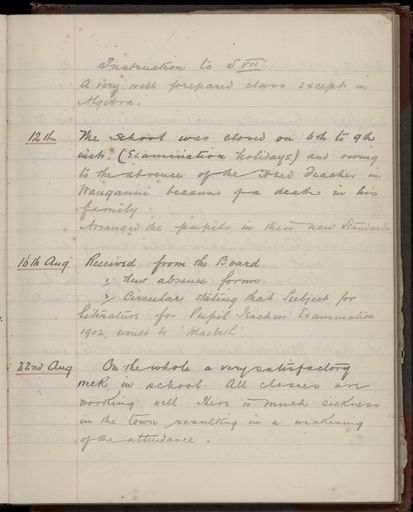 Instruction to S VII.
A very well prepared class except in
Algebra.
12th The school was closed on 6th to 9th
inst. (Examination holidays) and owing
to the absence of the Head Teacher in
Wanganui because of a death in his
family
Arranged the pupils in their new Standards
16th Aug Received from the Board
1/ New absence forms.
2/ Circular stating that Subject for
literature for Pupil Teachers' Examination
1902 would be 'Macbeth'.
22nd Aug On the whole a very satisfactory
week in school. All classes are
working well. There is much sickness
in the town resulting in a weakening
of the attendance.